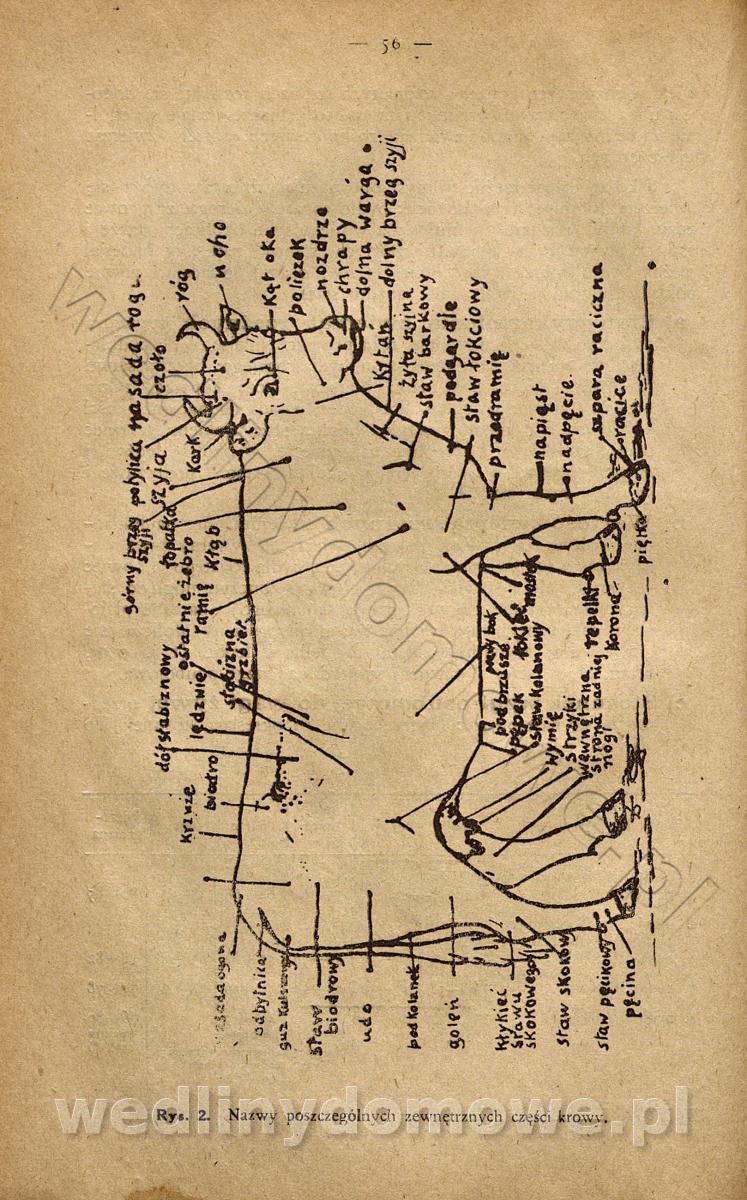 — 56 —
róg
ucho
Kąt oka
policzek
nozdrze
chrapy
dolna warga
dolny brzeg szyji
Krtań
żyła szyjna
staw barkowy
podgardle
staw łokciowy
przedramię
napiąst
nadpęcie
szpara raciczna
racice
piętka
nasada rogu
czoło
potylica
Kark
szyja
górny brzeg
szyji
łopatka
Kłąb
ostatnie żebro
ramię
słabizna
grzbiet
dół słabiznowy
lędzwie
biodro
krzyże
mostek
łokieć
prawy bok
podbrzusze
pępek
staw kolanowy
Wymię
Strzyki
wewnętrzna
strona zadniej
nogi
repelki
Korona
nasada ogona
odbytnica
guz kulszowy
staw
biodrowy
udo
podkolanek
goleń
kłykieć
stawu
skokowego
staw skokowy
staw pęcinowy
pęcina
Rys. 2. Nazwy poszczególnych zewnętrznych części krowy.
wedlinydomowe.pl
wedlinydomowe.pl